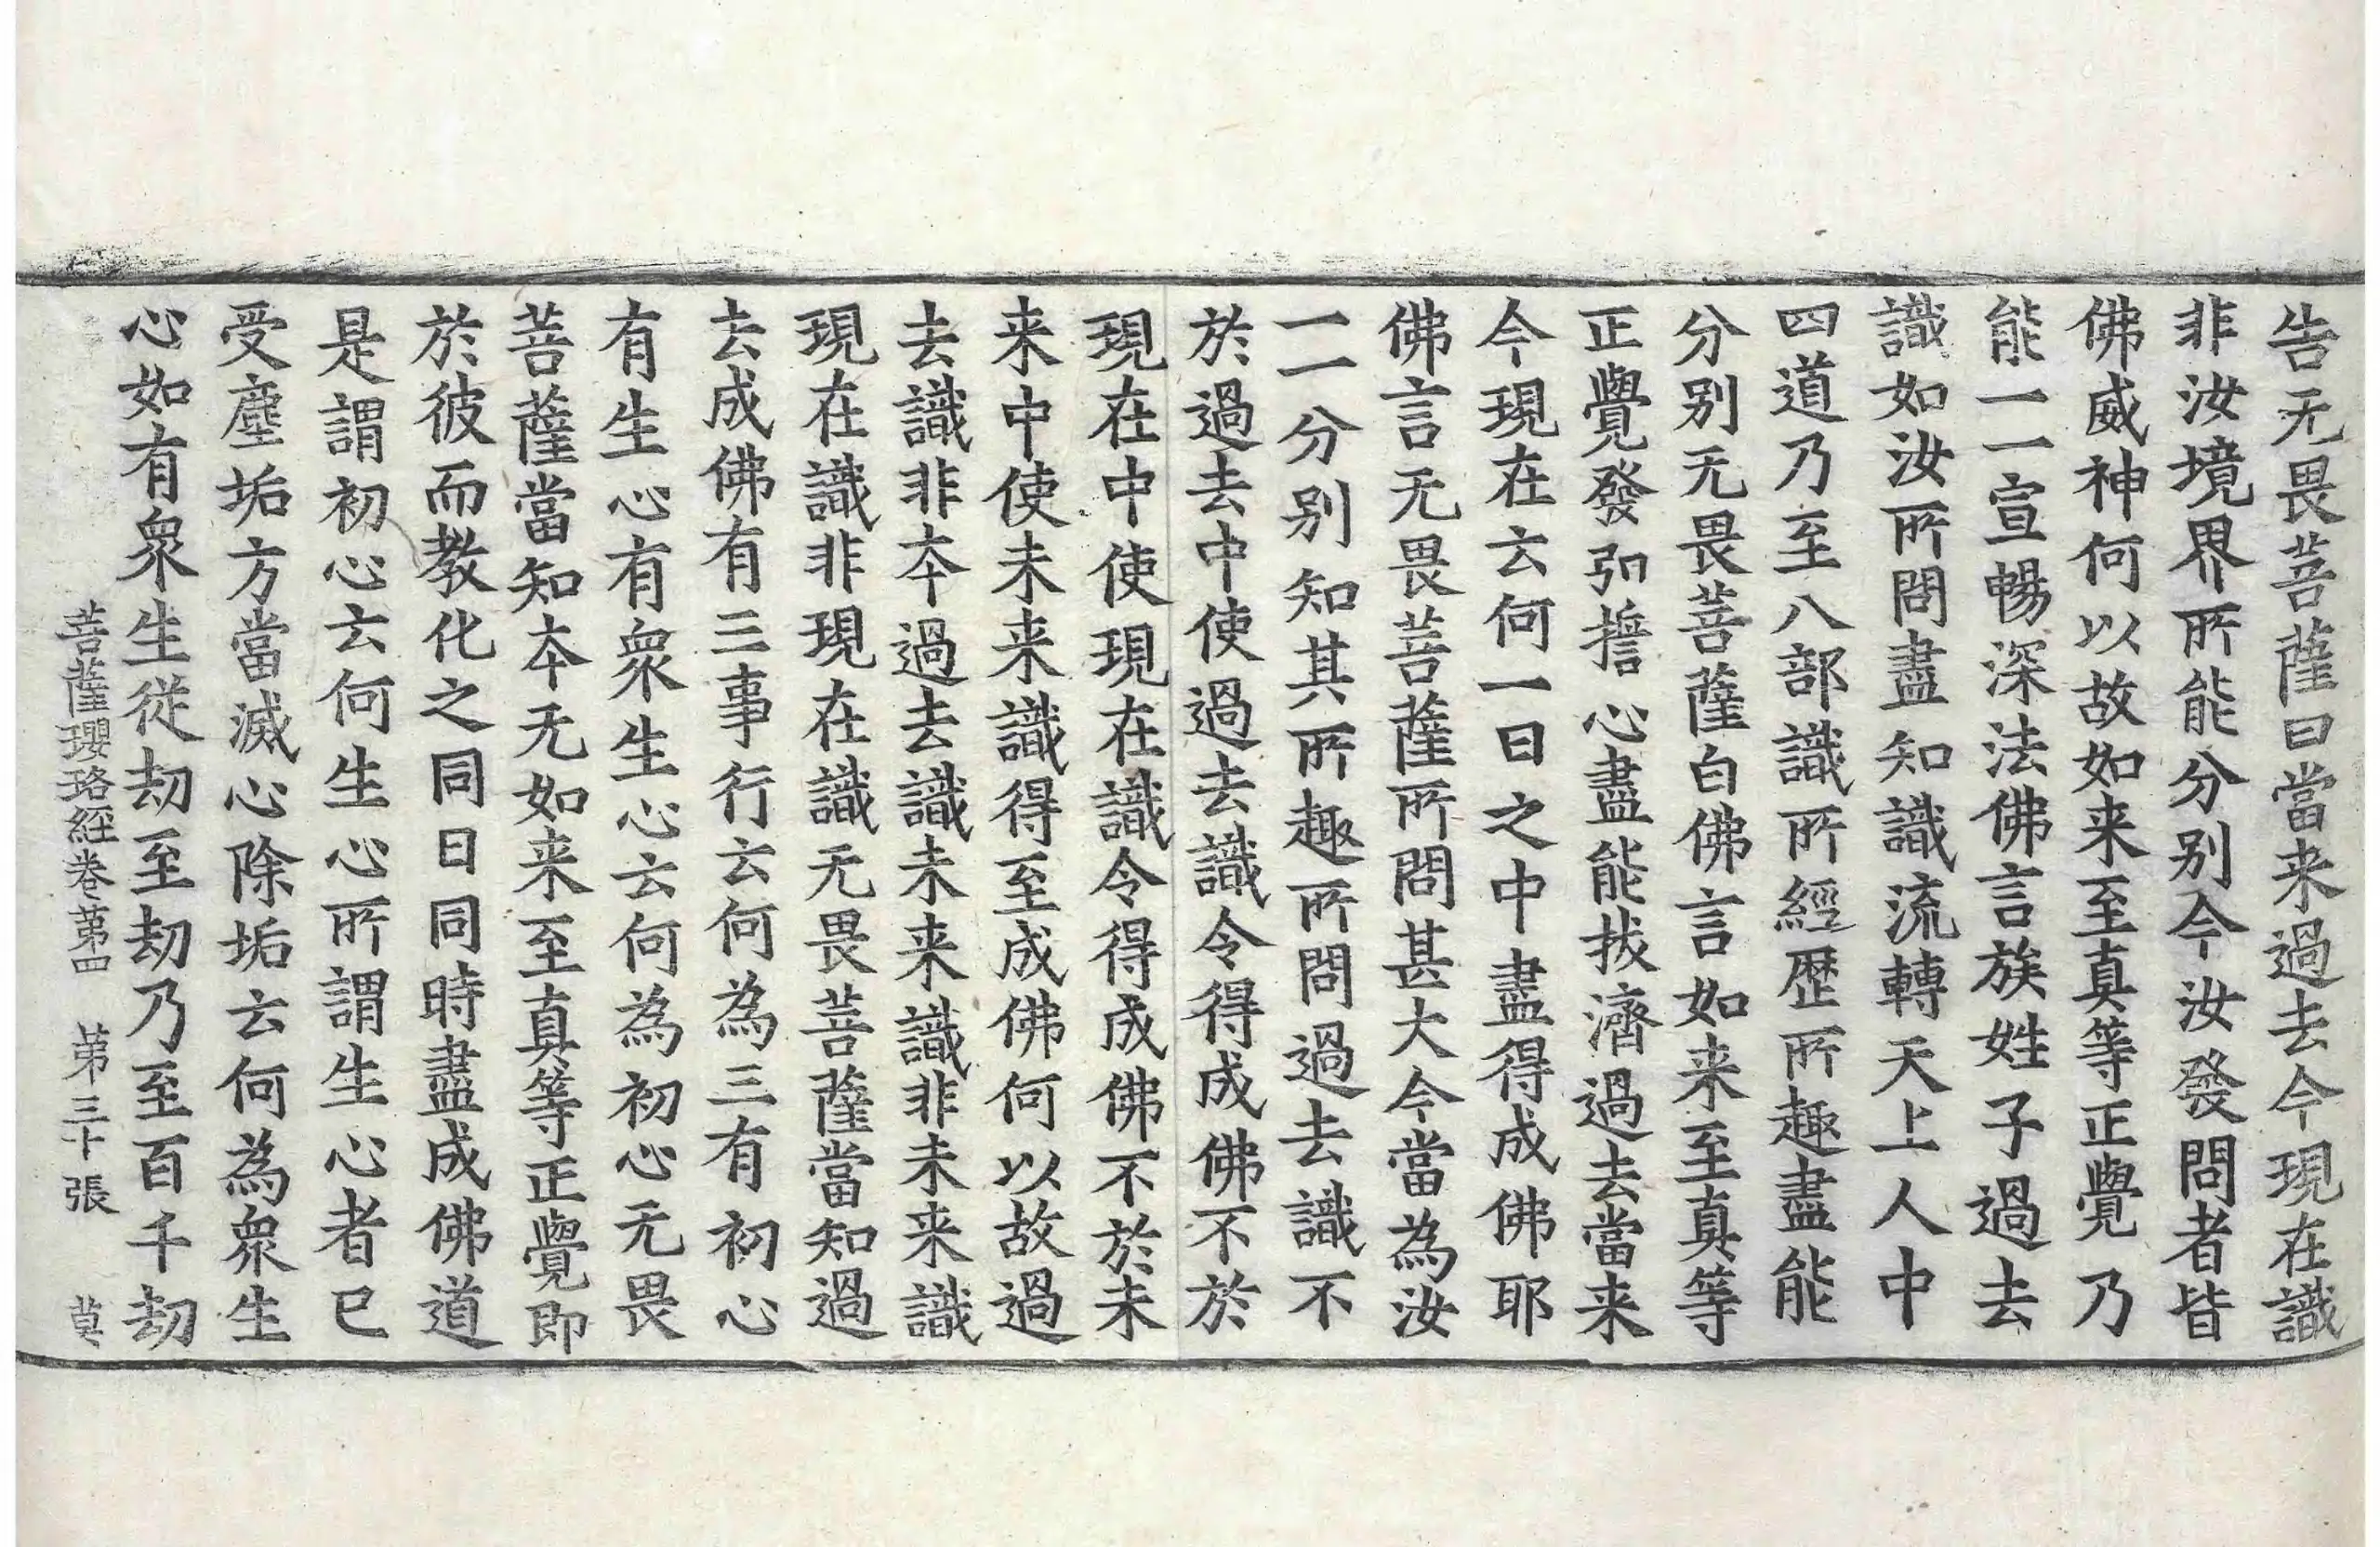 告无畏菩薩曰當来過去今現在識
非汝境界所能分别今汝發問者皆
佛威神何以故如来至真等正覺乃
能一一宣暢深法佛言族姓子過去
識如汝所問盡知識流轉天上人中
四道乃至八部識所經歷所趣盡能
分别无畏菩薩白佛言如来至真等
正覺發弘誓心盡能拔濟過去當来
今現在云何一日之中盡得成佛耶
佛言无畏菩薩所問甚大今當為汝
一一分别知其所趣所問過去識不
於過去中使過去識令得成佛不於
現在中使現在識令得成佛不於未
来中使未来識得至成佛何以故過
去識非本過去識未来識非未来識
現在識非現在識无畏菩薩當知過
去成佛有三事行云何為三有初心
有生心有衆生心云何為初心无畏
菩薩當知本无如来至真等正覺即
於彼而教化之同日同時盡成佛道
是謂初心云何生心所謂生心者已
受塵垢方當滅心除垢云何為衆生
心如有衆生從劫至劫乃至百千劫
菩薩瓔珞經卷第四　第三十張　莫